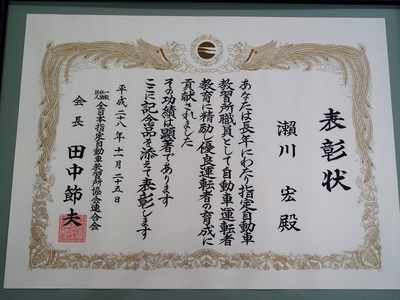 表彰状
瀬川宏殿
あなたは長年にわたり指定自動車
教習所職員として自動車運転者
教育に精励し優良運転者の育成に
貢献されました
その功績は顕著であります
ここに記念品を添えて表彰します
平成二十八年十一月二十五日
一般社団法人全日本指定自動車教習所協会連合会
会長田中節夫